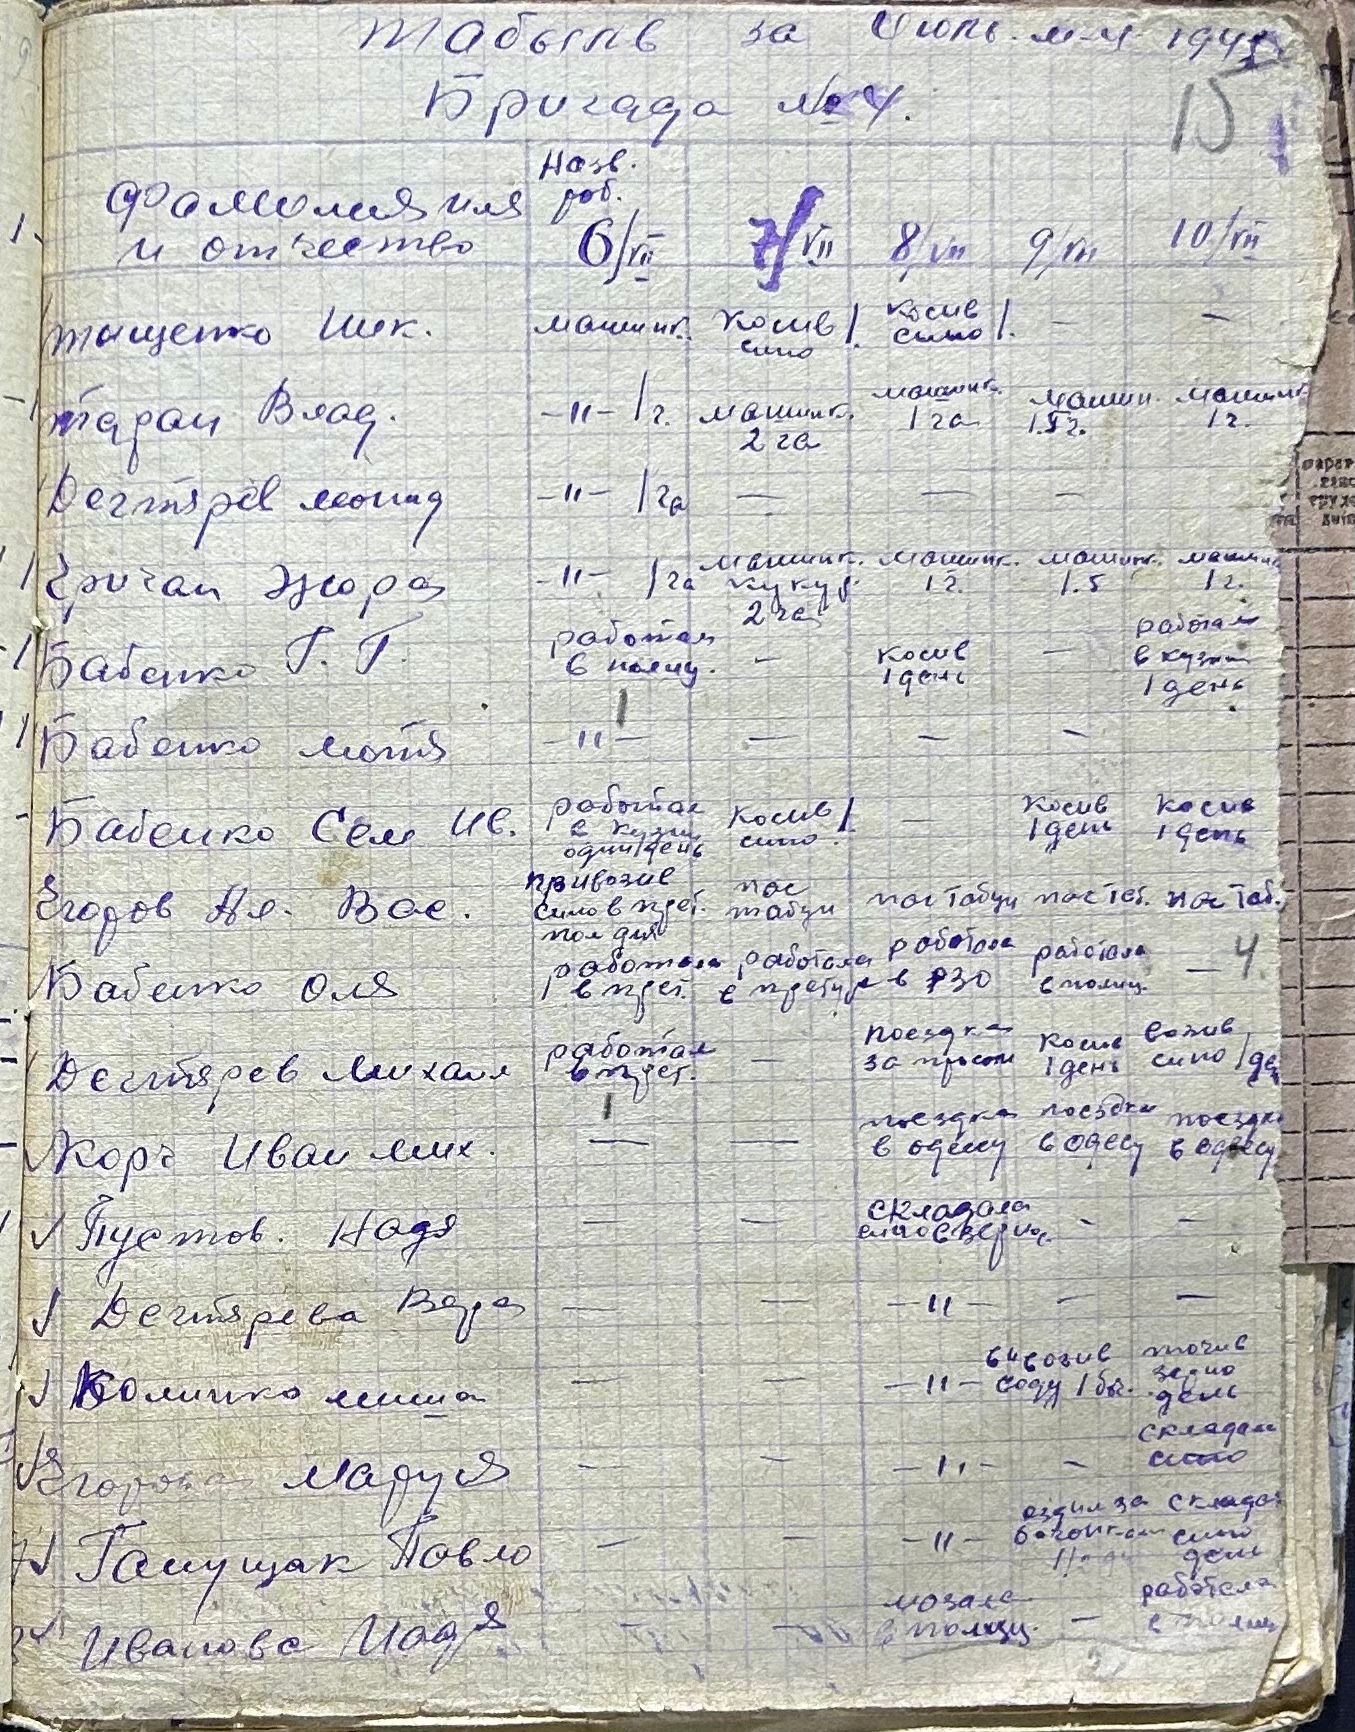 за Июль м-ц 1943
15
Бригада № 4.
Назв. раб.
Фамилия имя
и отчество
6/VII 7/VII 8/VII 9/VII 10/VII
Тищенко Ник. машинк. косив сино 1. косив сино 1. — —
Таран Влад. —"— 1 г. машинк. 2 га машинк. 1 га машин. 1.5 г. машинк. 1 г.
Дегтярев Леонид —"— 1 га — — —
Гричан Жора —"— 1 га машинк. кукур. 2 га машинк. 1 г. машинк. 1.5 1 г.
Бабенко Г. Г. работал в полиц. — косив 1 день — работал в кузни 1 день
1
Бабенко Мотя —"— — — —
Бабенко Сем Ив. работал в кузни один день косив сино. 1 — косив 1 день косив 1 день
Егоров Ал. Вас. привозив сино в пол дня пас табун пас табун пас таб. пас таб.
Бабенко Оля работала в работала в работала в РЗО работала в полиц. — 4
Дегтярев Михаил работал в — поездка за просом косив 1 день возив сино 1 де
1
Корч Иван Мих. — — поездка в одесу поездка в одесу поездка в одесу
Пустов. Надя — — складала сино — —
Дегтярева Вера — — —"— — —
Количко Миша — — —"— воду 1 точив зерно день
Егорова Маруся — — —"— — складал сино
Ганущак Павло — — —"— ездил за сино день
Иванова Надя — — мазала в полиц. — работала в полиц